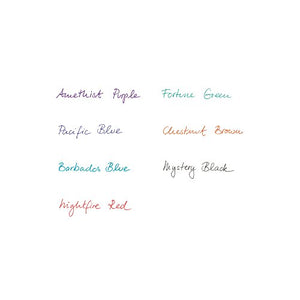 Amethist Purple
Pacific Blue
Barbados Blue
Nightfire Red
Fortune Green
Chestnut Brown
Mystery Black